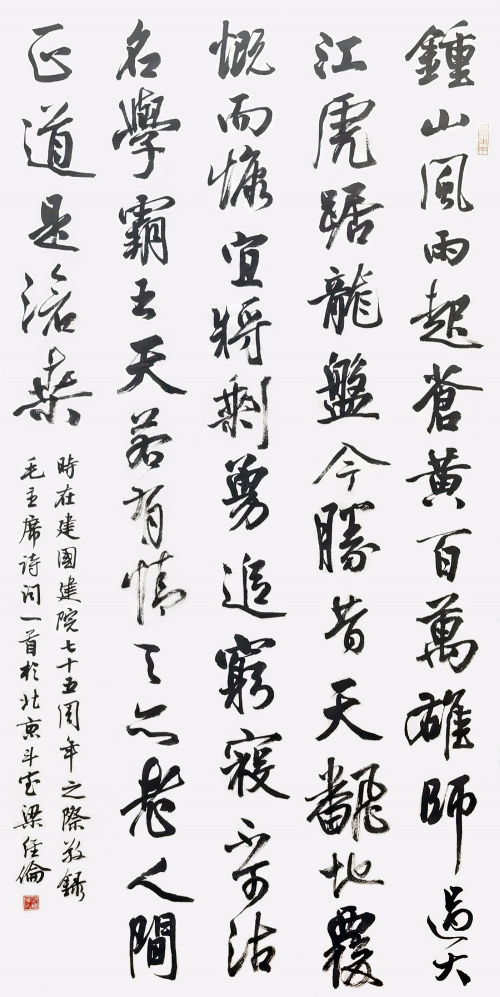 鍾山風雨起蒼黃百萬雄師過大
江虎踞龍盤今勝昔天飜地覆
慨而慷宜將剩勇追窮寇不可沽
名學霸王天若有情天亦老人間
正道是滄桑
時在建國建院七十五周年之際敬錄
毛主席诗词一首於北京斗室梁倫